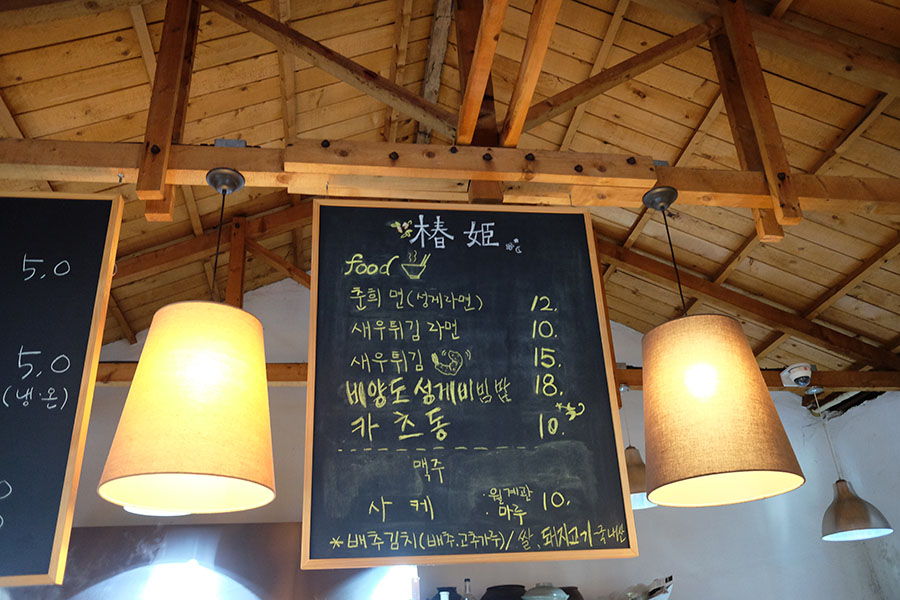 5,0
5,0
(냉·온)
椿姬
food
춘희 면(성게라면) 12.
새우튀김 라면 10.
새우튀김 15.
비양도 성게비빔밥 18.
카츠동 10.
맥주
사케 ·월계관 10.
·마루
*배추김치(배추.고추가루)/쌀、돼지고기국내산